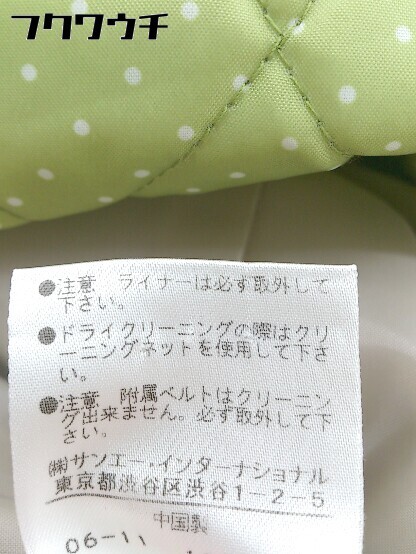 フクワウチ
●注意 ライナーは必ず取外して
下さい。
●ドライクリーニングの際はクリ
ーニングネットを使用して下さ
い。
●注意 附属ベルトはクリーニン
グ出来ません。必ず取外して下
さい。
㈱サンエー・インターナショナル
東京都渋谷区渋谷1-2-5
中国製
06-11